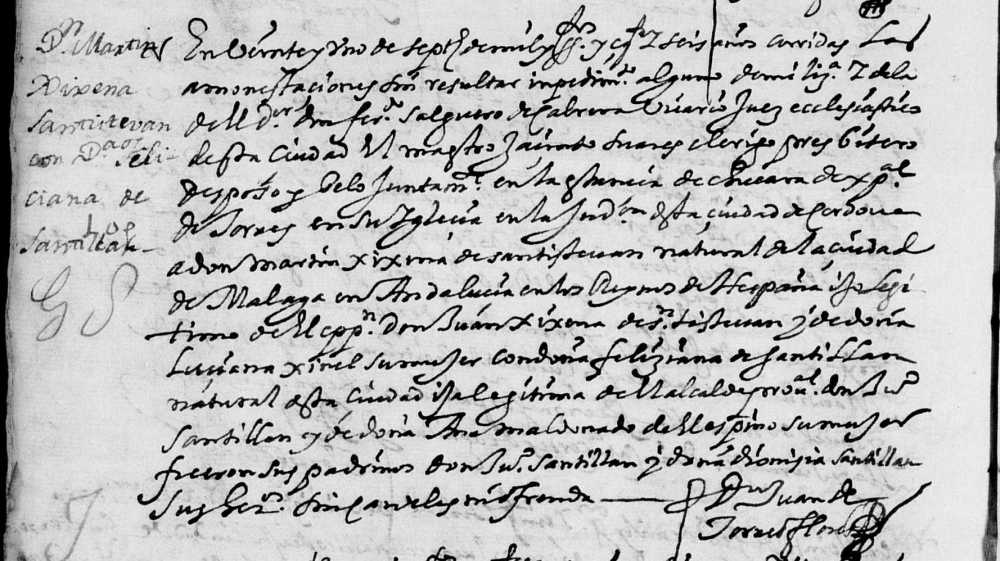 Dn Martin
Xixena
Santistevan
con Da Feli-
ciana de
Santillan
En veinte y uno de septe de mill y ss.os y cinqta Z seis años corridas Las
amonestaciones sin resultar inpedimto alguno de mi lisa Z de la
de El Dor don fer.co Salguero de Cabrera Vicario Juez ecclesiastico
desta ciudad El maestro Jacinto Suares clerigo presbitero
Desposo y belo Juntamte en la estancia de chucara de xpal
de Torres en su Yglecia en la Jurdon desta ciudad de Cordova
a don martin xixena de santistevan natural de la ciudad
de Malaga en Andalucia en los Reynos de Hespaña ijo legi
timo de El cappn Don Juan Xixena de Sn tistevan y de doña
Luciana xinel su muxer con doña feliziana de santillan
natural desta ciudad ija legitima de El alcalde proal don Juo
Santillan y de doña Ana maldonado de El espino su muxer
fueron sus padrinos don Juo santillan y doña dionisia santillan
su herna sin candelas ni ofrenda
Juan de
Torres flores